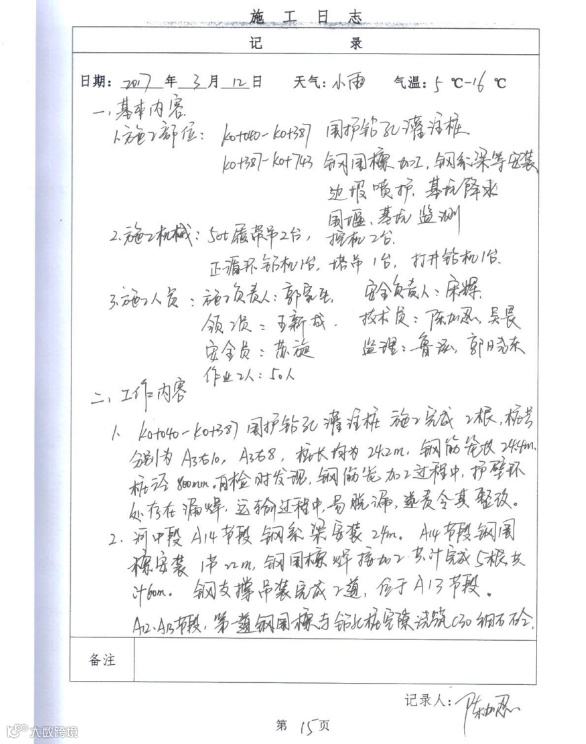 施工日志
记 录
日期: 2017 年 3 月 12 日 天气: 小雨 气温: 5 ℃-16 ℃
一、基本内容
1.施工部位: K0+040-K0+387 围护钻孔灌注桩
K0+387-K0+743 钢围檩加工, 钢系梁等安装
边坡喷护、基坑降水
围堰、基坑监测
2.施工机械: 50t履带吊2台, 挖机2台
正循环钻机1台, 塔吊1台, 打井钻机1台.
3.施工人员: 施工负责人: 郭 安全负责人: 宋辉
领工员: 王新成. 技术员: 陈加忍, 吴晨
安全员: 苏旋 监理: 鲁泓, 郭
作业工人: 50人
二、工作内容
1. K0+040-K0+387 围护钻孔灌注桩 施工完成 2根, 桩号
分别为 A3右10, A3右8, 桩长均为 24.2m, 钢筋笼长 24.4m,
桩径 800mm. 自检时发现, 钢筋笼加工过程中, 护壁环
处存在漏焊, 运输过程中, 易脱漏, 并责令其整改。
2. 河中段 A14节段 钢系梁安装 24m. A14节段钢围
檩安装 1节22m, 钢围檩焊接加工共计完成5根共
计60m. 钢支撑吊装完成2道, 位于A13节段。
A12、A13节段, 第一道钢围檩与钻孔桩空隙浇筑C30细石砼.
备注
记录人: 陈加忍
第 15 页
大政跨境